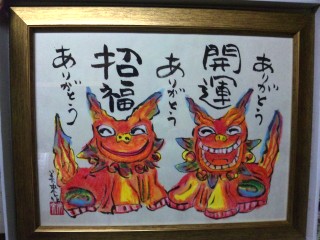 ありがとう
開運
ありがとう
招福
ありがとう